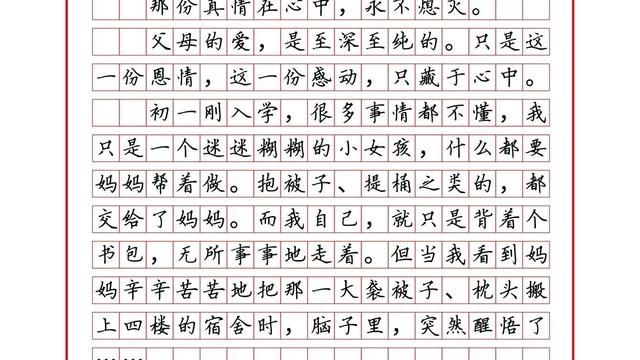 那份真情在心中，永不熄灭。
父母的爱，是至深至纯的。只是这
一份恩情，这一份感动，只藏于心中。
初一刚入学，很多事情都不懂，我
只是一个迷迷糊糊的小女孩，什么都要
妈妈帮着做。抱被子、提桶之类的，都
交给了妈妈。而我自己，就只是背着个
书包，无所事事地走着。但当我看到妈
妈辛辛苦苦地把那一大袋被子、枕头搬
上四楼的宿舍时，脑子里，突然醒悟了
……